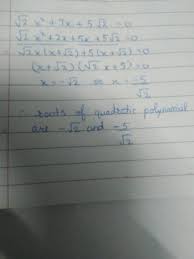 √2 x² + 7x + 5√2 = 0
√2 x² + 2x + 5x + 5√2 = 0
√2 x (x + √2) + 5 (x + √2) = 0
(x + √2) (√2 x + 5) = 0
x = -√2 or x = -5/√2
∴ roots of quadratic polynomial
are -√2 and -5/√2